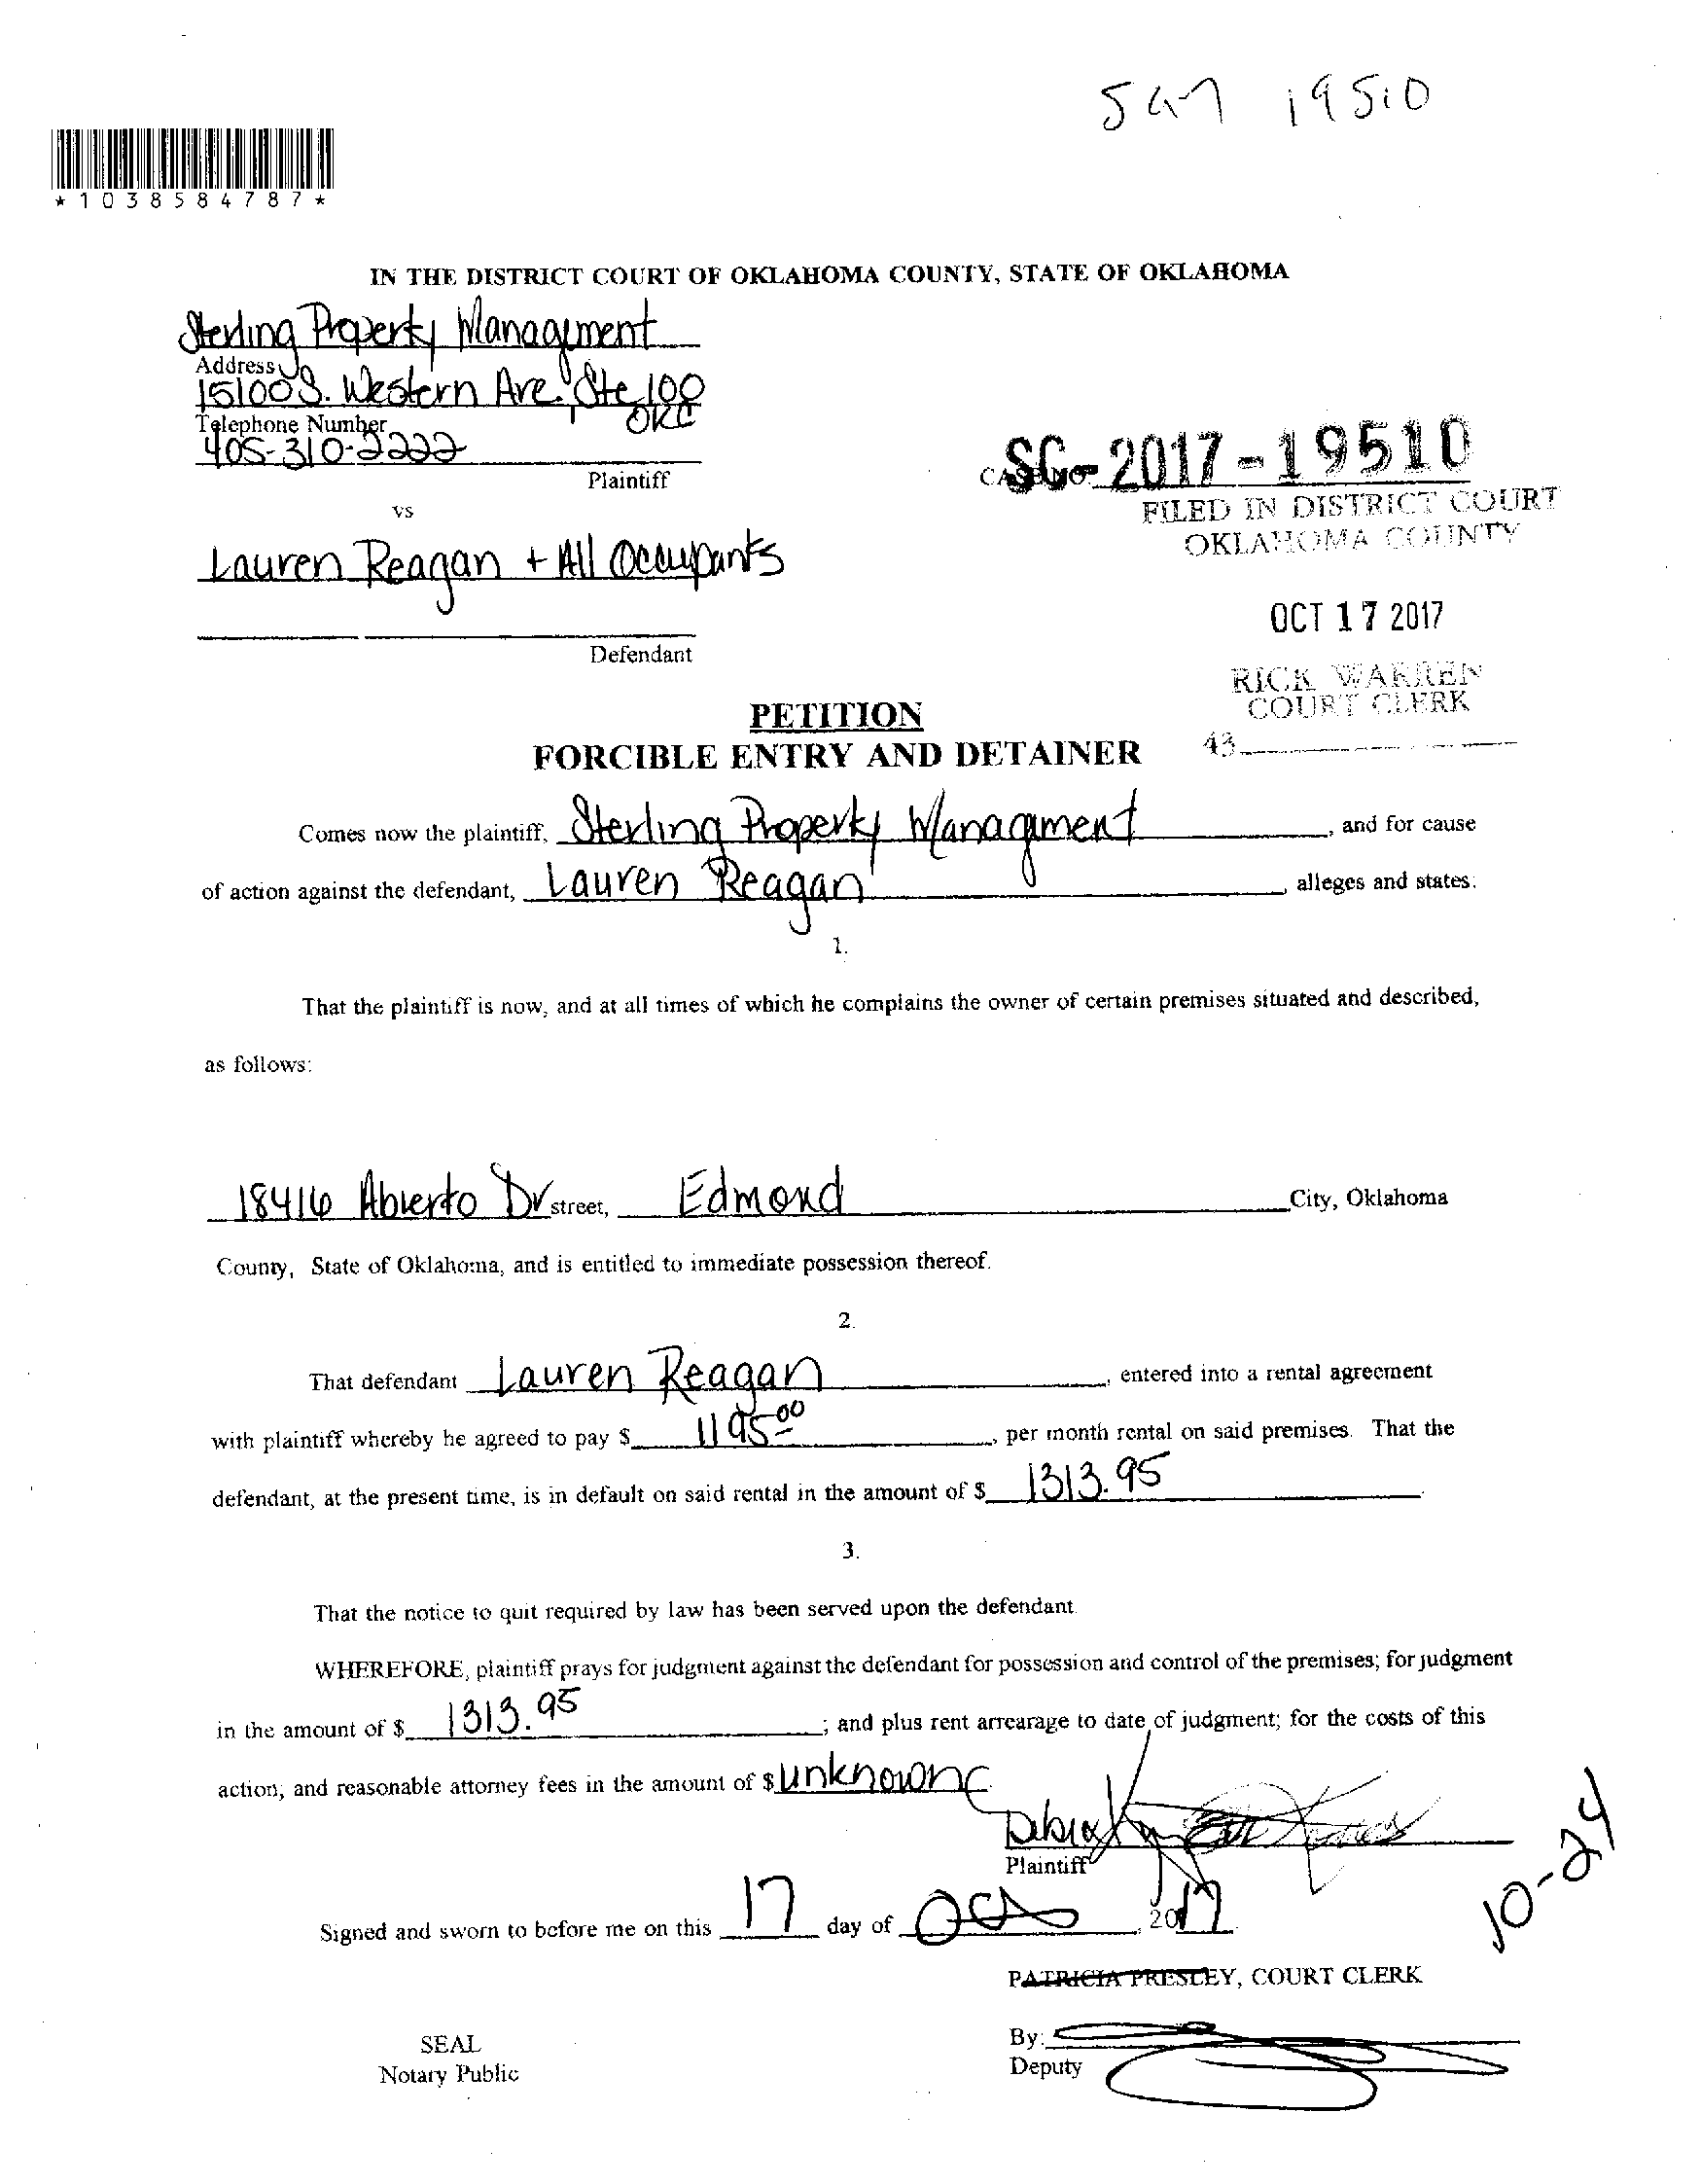 19510
*1038584787*
IN THE DISTRICT COURT OF OKLAHOMA COUNTY, STATE OF OKLAHOMA
Sterling Property Management
Address
15100 S. Western Ave. Ste 100
OKC
Telephone Number
405-310-2222
Plaintiff
CASE NO. SC-2017-19510
FILED IN DISTRICT COURT
OKLAHOMA COUNTY
vs
Lauren Reagan + All Occupants
OCT 17 2017
Defendant
RICK WARREN
COURT CLERK
43
PETITION
FORCIBLE ENTRY AND DETAINER
Comes now the plaintiff, Sterling Property Management, and for cause
of action against the defendant, Lauren Reagan, alleges and states:
1.
That the plaintiff is now, and at all times of which he complains the owner of certain premises situated and described,
as follows:
18416 Abierto Dr street, Edmond City, Oklahoma
County, State of Oklahoma, and is entitled to immediate possession thereof.
2.
That defendant Lauren Reagan, entered into a rental agreement
with plaintiff whereby he agreed to pay $ 1195.00, per month rental on said premises. That the
defendant, at the present time, is in default on said rental in the amount of $ 1313.95
3.
That the notice to quit required by law has been served upon the defendant.
WHEREFORE, plaintiff prays for judgment against the defendant for possession and control of the premises; for judgment
in the amount of $ 1313.95; and plus rent arrearage to date of judgment; for the costs of this
action; and reasonable attorney fees in the amount of $ unknown
Debra
Plaintiff
10-24
Signed and sworn to before me on this 17 day of Oct, 2017
PATRICIA PRESLEY, COURT CLERK
SEAL
Notary Public
By:
Deputy